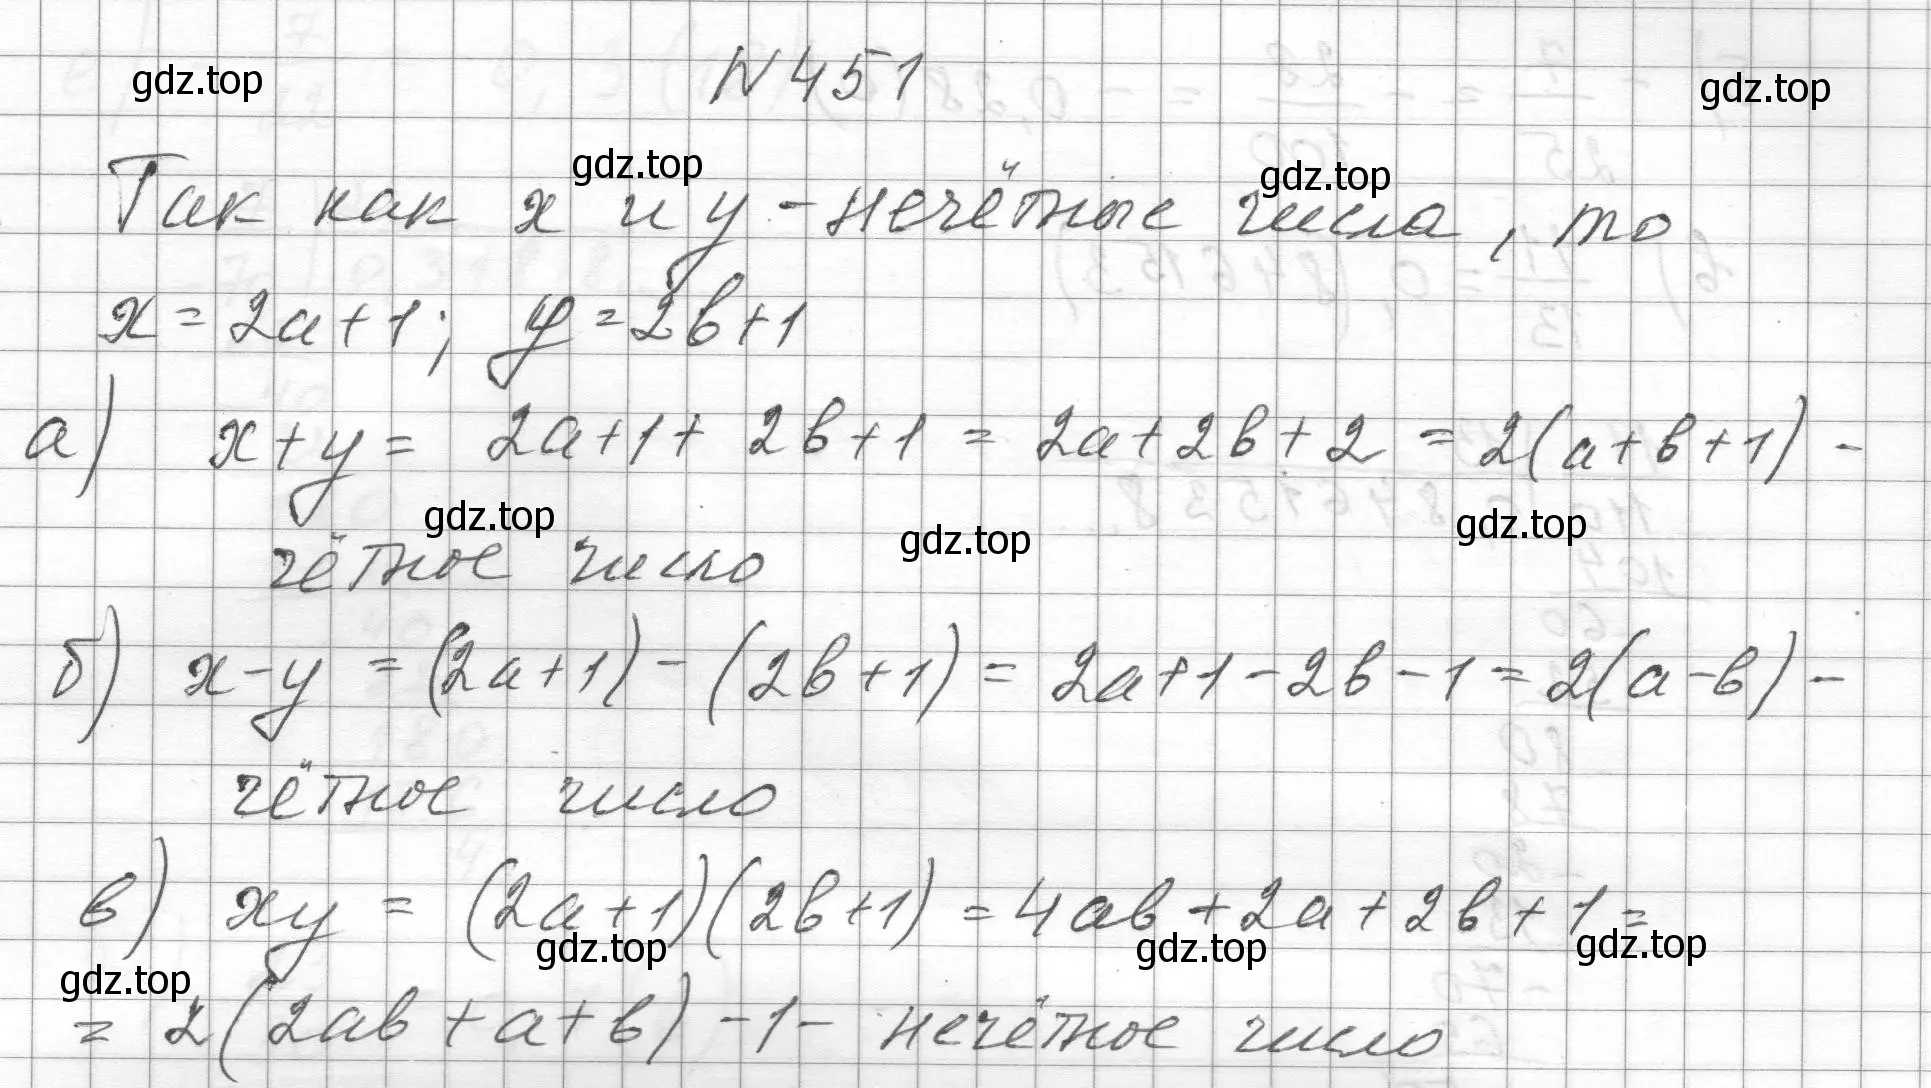 N 451
gdz.top gdz.top
gdz.top gdz.top
Так как x и y - нечётные числа, то
x = 2a + 1; y = 2b + 1
а) x + y = 2a + 1 + 2b + 1 = 2a + 2b + 2 = 2(a + b + 1) -
gdz.top gdz.top gdz.top
чётное число
б) x - y = (2a + 1) - (2b + 1) = 2a + 1 - 2b - 1 = 2(a - b) -
чётное число
в) xy = (2a + 1)(2b + 1) = 4ab + 2a + 2b + 1 =
gdz.top gdz.top gdz.top gdz.top
= 2(2ab + a + b) - 1 - нечётное число